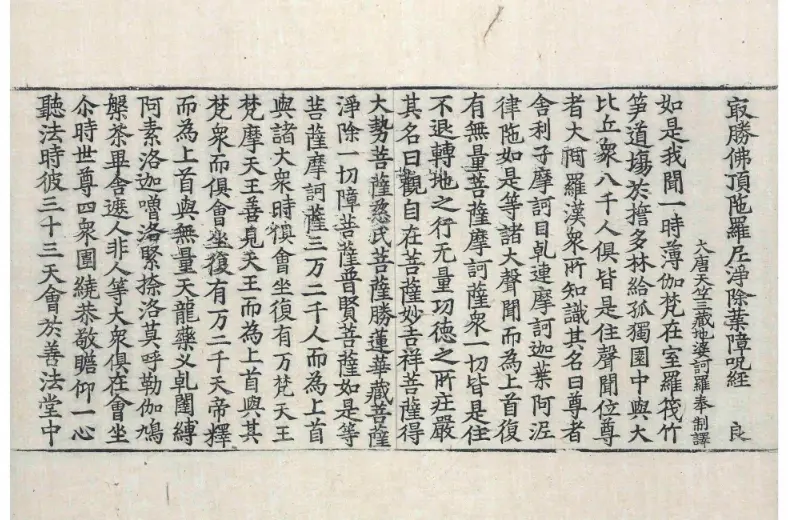 冣勝佛頂陁羅尼淨除業障呪經 良
大唐天竺三藏地婆訶羅奉 制譯
如是我聞一時薄伽梵在室羅筏竹
笋道場於擔多林給孤獨園中與大
比丘衆八千人俱皆是住聲聞位尊
者大阿羅漢衆所知識其名曰尊者
舍利子摩訶目乹連摩訶迦葉阿泥
律陁如是等諸大聲聞而為上首復
有無量菩薩摩訶薩衆一切皆是住
不退轉地之行无量功德之所庄嚴
其名曰觀自在菩薩妙吉祥菩薩得
大勢菩薩慈氏菩薩勝蓮華藏菩薩
淨除一切障菩薩普賢菩薩如是等
菩薩摩訶薩三万二千人而為上首
與諸大衆時慎會坐復有万梵天王
梵摩天王善見天王而為上首與其
梵衆而俱會坐復有万二千天帝釋
而為上首與無量天龍藥叉乹闥縛
阿素洛迦嚕洛緊捺洛莫呼勒伽鳩
槃茶畢舍遮人非人等大衆俱在會坐
尒時世尊四衆圍繞恭敬瞻仰一心
聽法時彼三十三天會於善法堂中